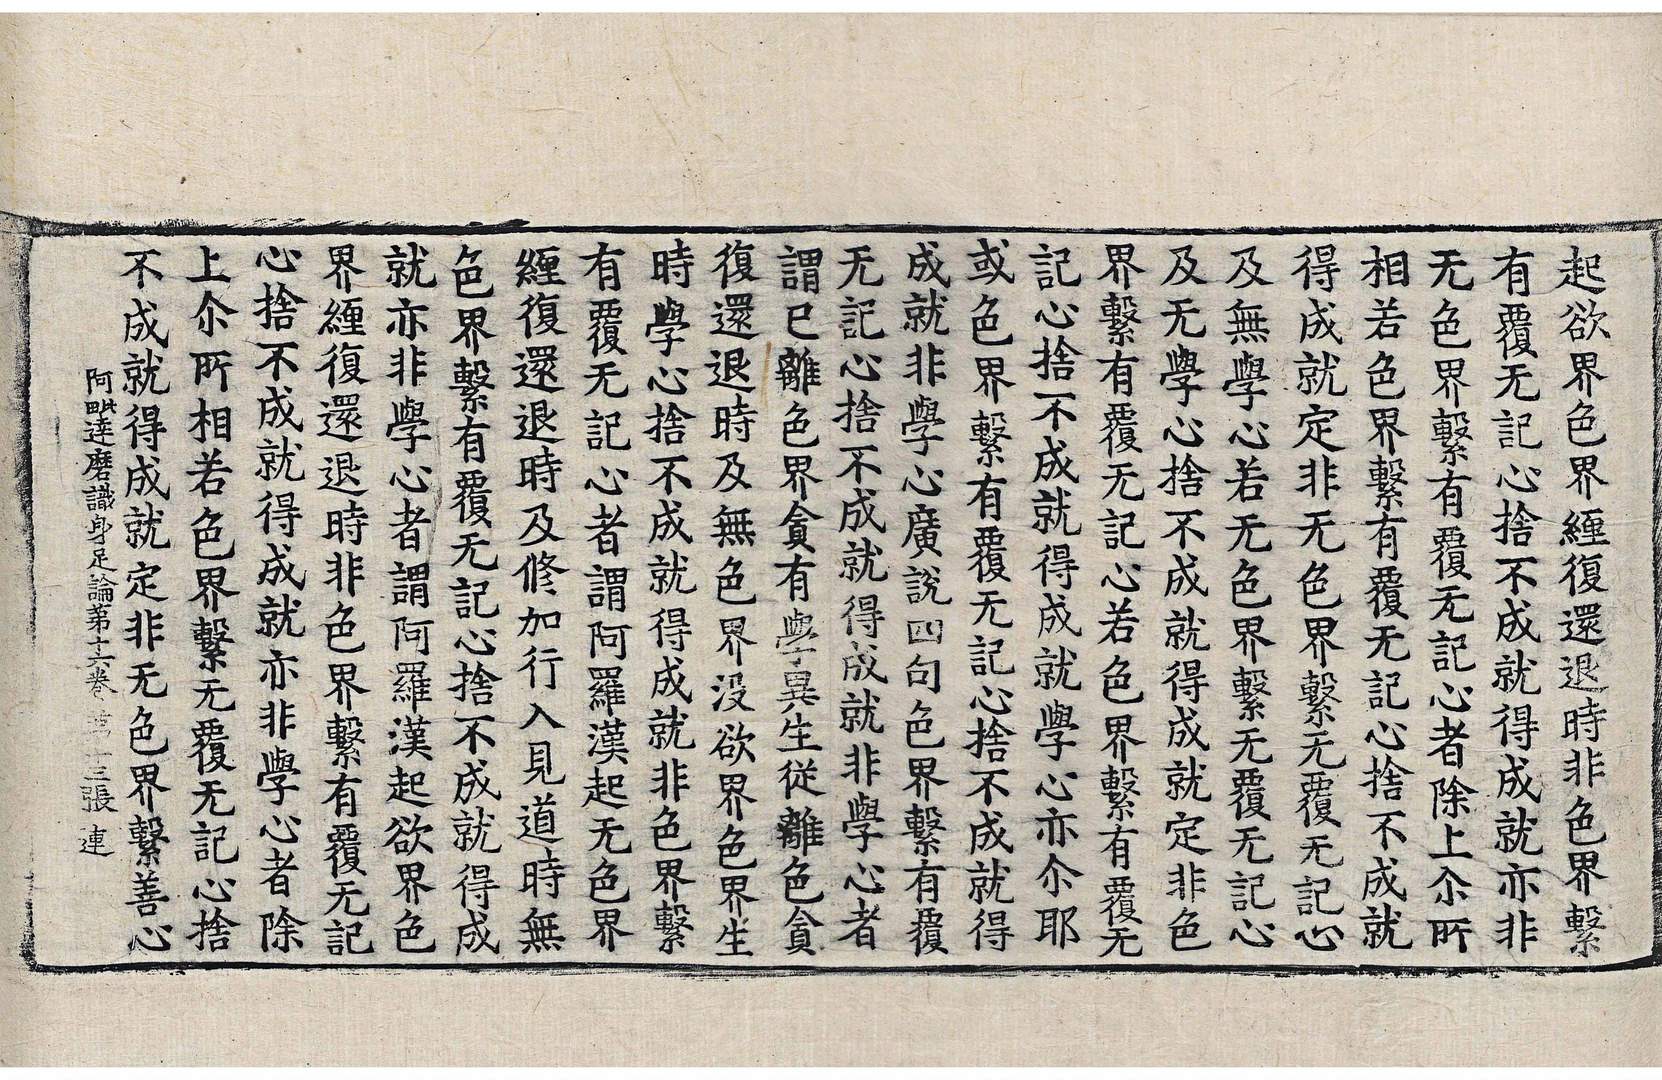 起欲界色界纏復還退時非色界繫
有覆无記心捨不成就得成就亦非
无色界繫有覆无記心者除上尒所
相若色界繫有覆无記心捨不成就
得成就定非无色界繫无覆无記心
及無學心若无色界繫无覆无記心
及无學心捨不成就得成就定非色
界繫有覆无記心若色界繫有覆无
記心捨不成就得成就學心亦尒耶
或色界繫有覆无記心捨不成就得
成就非學心廣說四句色界繫有覆
无記心捨不成就得成就非學心者
謂已離色界貪有學異生從離色貪
復還退時及無色界沒欲界色界生
時學心捨不成就得成就非色界繫
有覆无記心者謂阿羅漢起无色界
纏復還退時及修加行入見道時無
色界繫有覆无記心捨不成就得成
就亦非學心者謂阿羅漢起欲界色
界纏復還退時非色界繫有覆无記
心捨不成就得成就亦非學心者除
上尒所相若色界繫无覆无記心捨
不成就得成就定非无色界繫善心
阿毗達磨識身足論第十六卷 第十三張 連